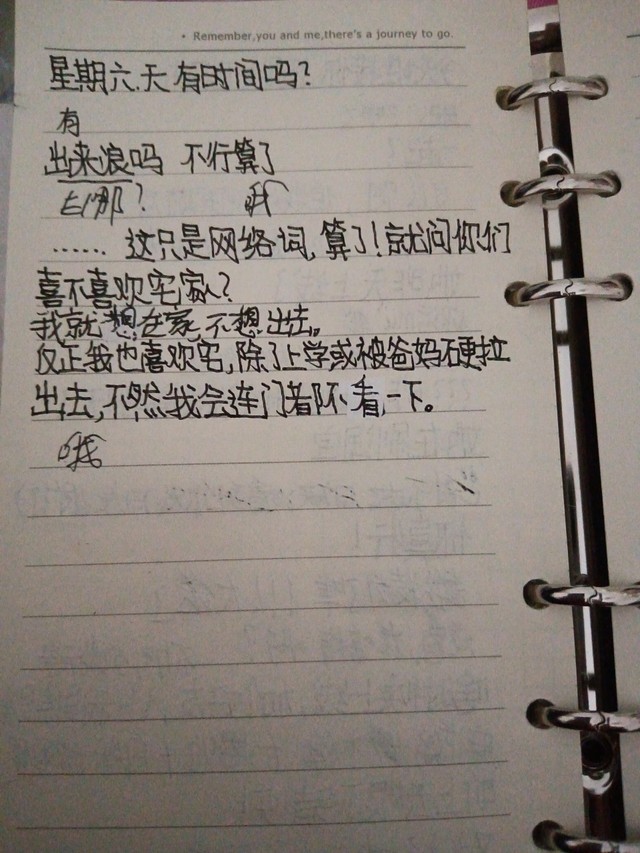 • Remember,you and me,there's a journey to go.
星期六.天有时间吗?
有
出来浪吗 不行算了
去哪? 哦
…… 这只是网络词,算了!就问你们
喜不喜欢宅家?
我就想在家,不想出去。
反正我也喜欢宅,除了上学或被爸妈硬拉
出去,不然我会连门都不看一下。
哦